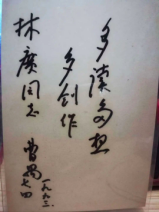 多读多想
多创作
林广同志
曹禺
一九八三.
七.四